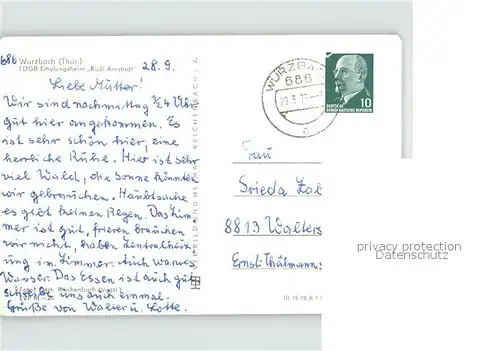 686 Wurzbach (Thür.)
FDGB-Erholungsheim „Rudi Arnstadt"
28.9.
Liebe Mutter!
Wir sind nachmittag ½4 Uhr
gut hier angekommen. Es
ist sehr schön hier, eine
herliche Ruhe. Hier ist sehr
viel Wald, die Sonne könnten
wir gebrauchen. Hauptsache
es gibt keinen Regen. Das Zim-
mer ist gut, frieren brauchen
wir nicht, haben Zentralheiz-
ung im Zimmer. Auch warmes
Wasser. Das Essen ist auch gut
schreibt uns auch einmal.
Grüße von Walter u. Lotte.
Reichenbach (Vogtl.)
WURZBA
686
DEUTSCHE
DEMOKRATISCHE REPUBLIK
10
Frau
Frieda
8813 Walters
Ernst-Thälmann
privacy protection
Datenschutz